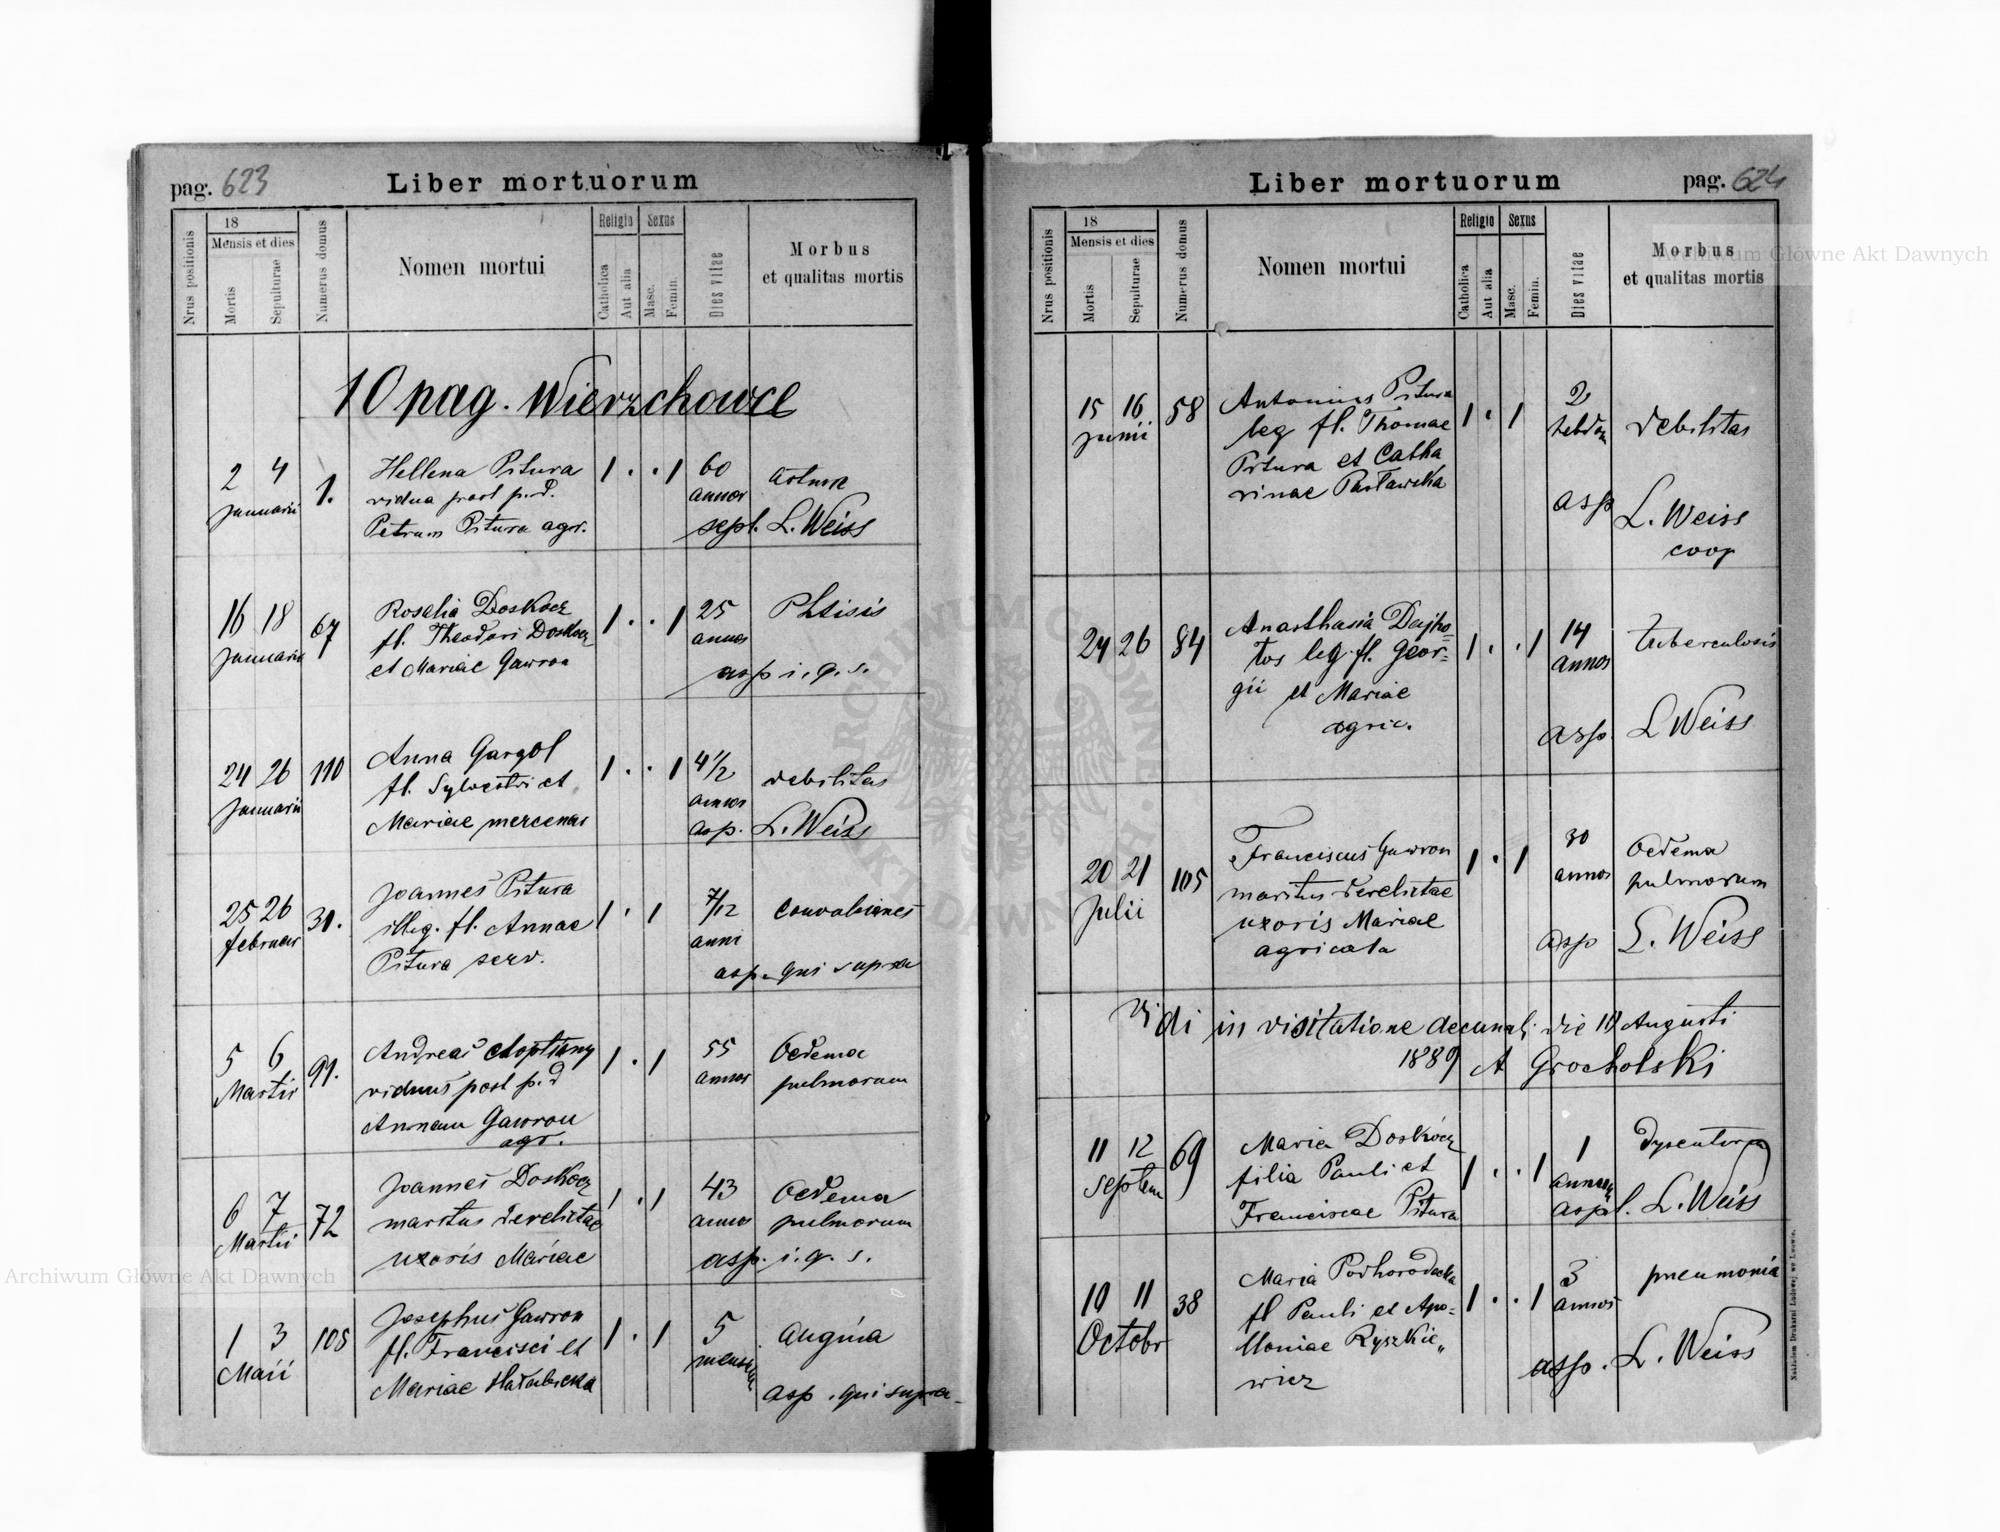 pag. 623
Liber mortuorum
Nrus positionis
18
Mensis et dies
Mortis
Sepulturae
Numerus domus
Nomen mortui
Religio
Catholica
Aut alia
Sexus
Masc.
Femin.
Dies vitae
Morbus
et qualitas mortis
10 pag. Wierzchowce
2 4
Januarii
1.
Hellena Pitura
vidua post p.d.
Petrum Pitura agr.
1 . . 1
60
annos
sepl. L. Weiss
16 18
Januarii
67
Rosalia Doskocz
fl. Theodori Doskocz
et Mariae Gawron
1 . . 1
25
annos
Phtisis
asp i. q. s.
24 26
Januarii
110
Anna Gargol
fl. Sylvestri et
Mariae mercenar
1 . . 1
4 1/2
annos
debilitas
asp. L. Weiss
25 26
februar
30.
Joannes Pitura
illeg. fl. Annae
Pitura serv.
1 . 1
7/12
anni
asp. qui supra
5 6
Martii
91.
Andreas
viduus post p.d
Annam Gawron
agr.
1 . 1
55
annos
Oedema
pulmorum
6 7
Martii
72
Joannes Doskocz
maritus derelictae
uxoris Mariae
1 . 1
43
annos
Oedema
pulmorum
asp. i. q. s.
1 3
Maii
108
Josephus Gawron
fl. Francisci et
Mariae
1 . 1
5
mensium
Angina
asp. qui supra
Liber mortuorum
pag. 624
Nrus positionis
18
Mensis et dies
Mortis
Sepulturae
Numerus domus
Nomen mortui
Religio
Catholica
Aut alia
Sexus
Masc.
Femin.
Dies vitae
Morbus
et qualitas mortis
15 16
Junii
58
Antonius Pitura
leg fl. Thomae
Pitura et Catha
rinae
1 . 1
2
hebdom
debilitas
asp
L. Weiss
coop
24 26
84
Anasthasia Dajho=
tos leg. fl. Geor=
gii et Mariae
agric.
1 . . 1
14
annos
tuberculosis
asp. L Weiss
20 21
Julii
105
Franciscus Gawron
maritus derelictae
uxoris Mariae
agricola
1 . 1
30
annos
Oedema
pulmorum
asp L. Weiss
Vidi in visitatione decanali die 10 Augusti
1889 A Grocholski
11 12
Septem
69
Maria Doskócz
filia Pauli et
Franciscae Pitura
1 . . 1
1
annum
aspl. L. Weiss
10 11
Octobr
38
Maria Podhorodecka
fl Pauli et Apo=
lloniae Ryszkie„
wicz
1 . . 1
3
annos
pneumonia
asp. L. Weiss
Nakładem Drukarni Ludowej we Lwowie.
Archiwum Główne Akt Dawnych
Archiwum Główne Akt Dawnych
ARCHIWUM GŁÓWNE AKT DAWNYCH